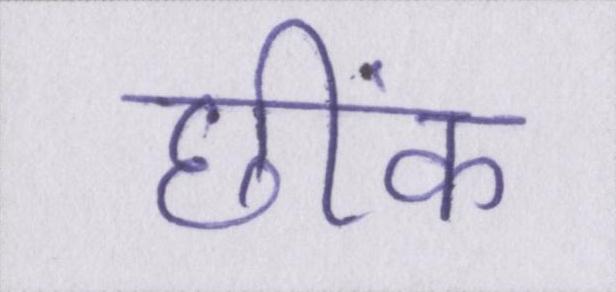 छींक